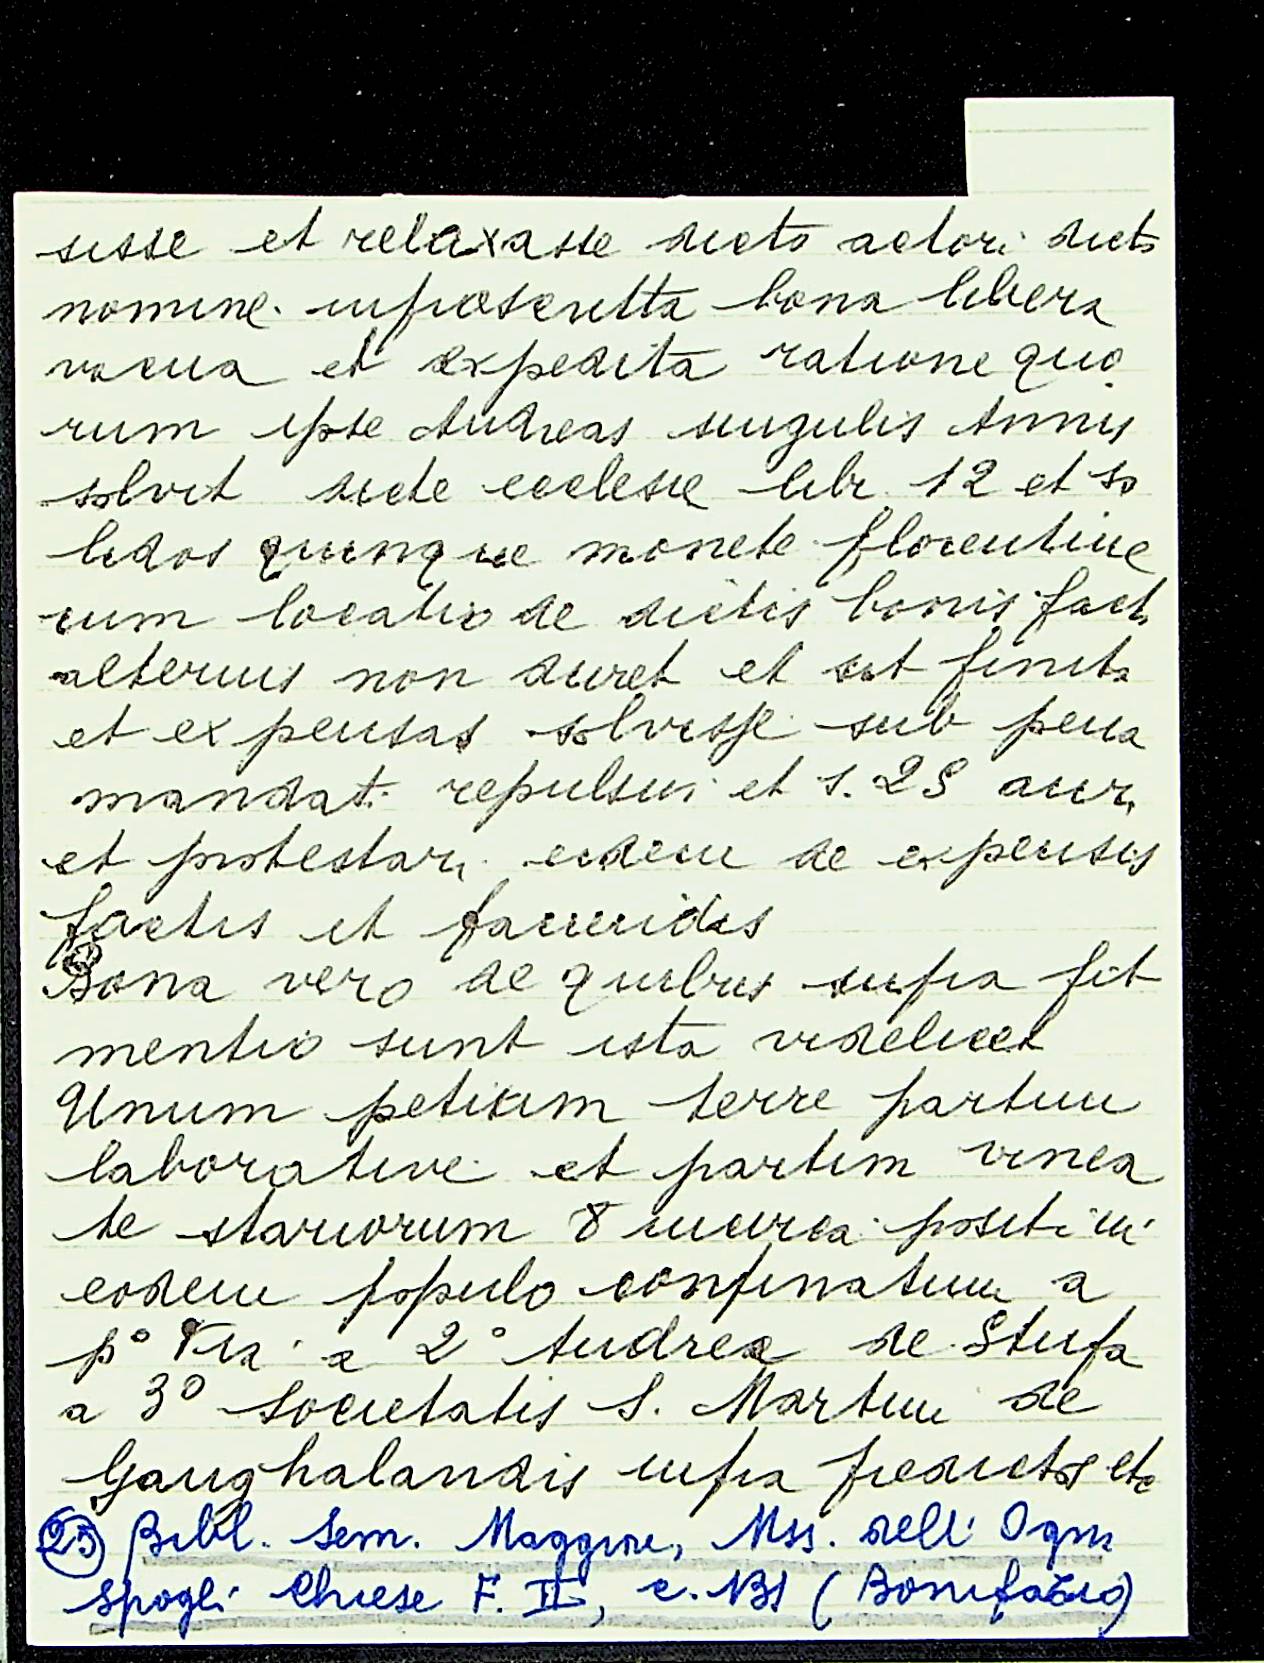 sisse et relaxasse dicto actori dicto
nomine infrascritta bona libera
vacua et expedita ratione quo
rum ipse Andreas singulis Annis
solvit dicte ecclesie libr. 12 et so
lidos quinque monete florentine
cum locatio de dictis bonis fact.
alterius non duret et sit finita
et expensas solvisse sub pena
mandat. repulsui et s. 25 aur.
et protestar. eidem de expensis
factis et faciendis
Bona vero de quibus supra fit
mentio sunt ista videlicet
Unum petium terre partim
laborative et partim vinea
te stariorum 8 incirca posit. in
eodem populo confinatum a
p° Via a 2° Andrea de Stufa
a 3° Societatis S. Martini de
Ganghalandis infra predictos etc
(23) Bibl. Sem. Maggiore, Mss. dell'Ogni
spogli Chiese F. II, c. (Bonifazio)